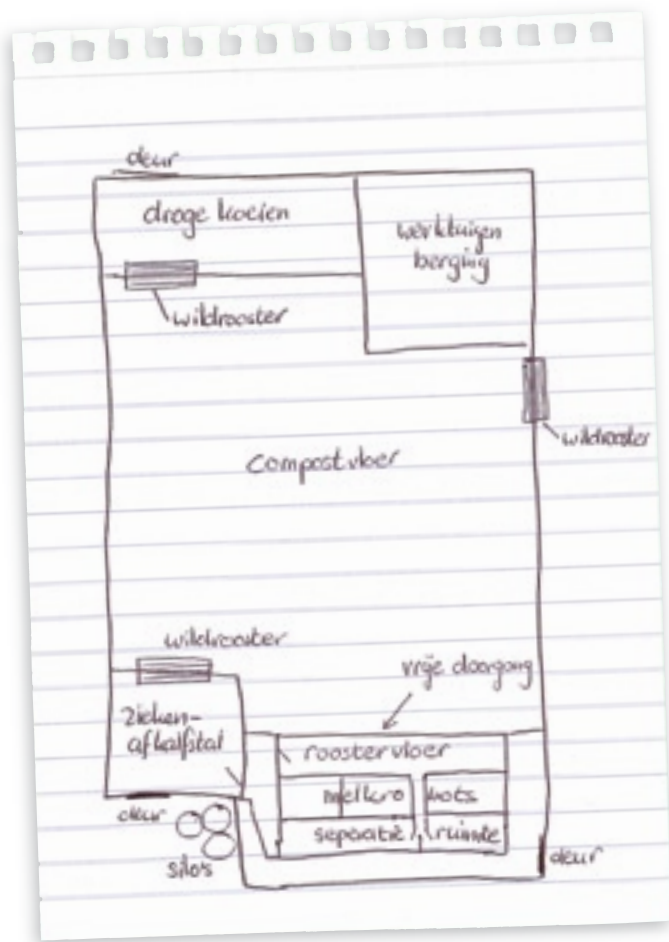 deur
droge koeien
werktuigen
berging
wildrooster
wildrooster
compostvloer
wildrooster
vrije doorgang
zieken-
afkalfstal
roostervloer
melkro bots
separatie ruimte
deur
silo's
deur